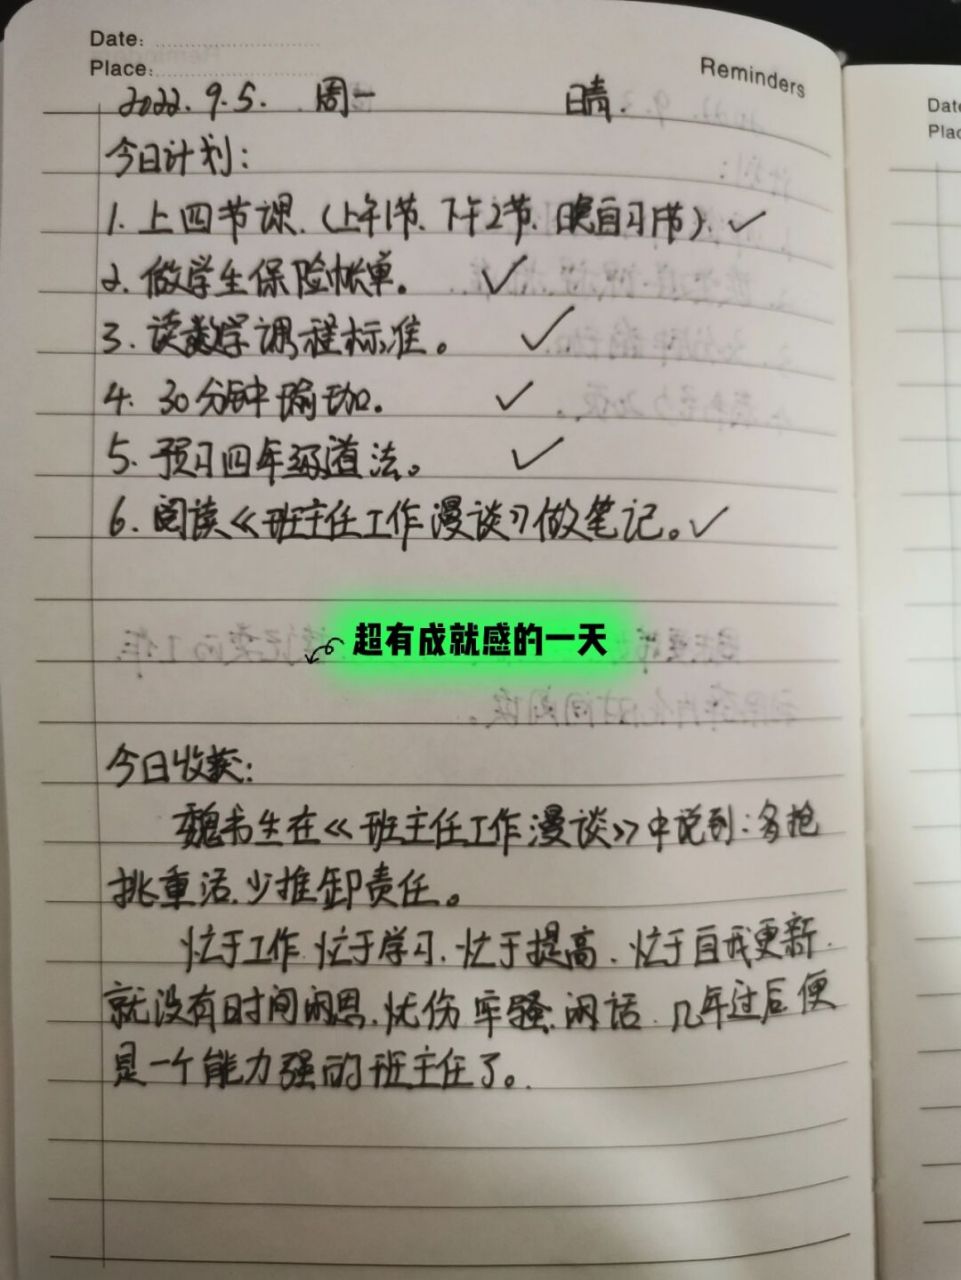 Date:
Place:
Reminders
2022.9.5. 周一 晴.
今日计划:
1. 上四节课.(上午1节、下午2节、晚自习1节). ✓
2. 做学生保险帐单。 ✓
3. 读数学课程标准。 ✓
4. 30分钟瑜珈. ✓
5. 预习四年级道法。 ✓
6. 阅读《班主任工作漫谈》做笔记。✓
超有成就感的一天
今日收获:
魏书生在《班主任工作漫谈》中说到:多抢
挑重活.少推卸责任。
忙于工作.忙于学习.忙于提高.忙于自我更新.
就没有时间闲思.忧伤 牢骚 闲话.几年过后便
是一个能力强的班主任了。
Date
Plac